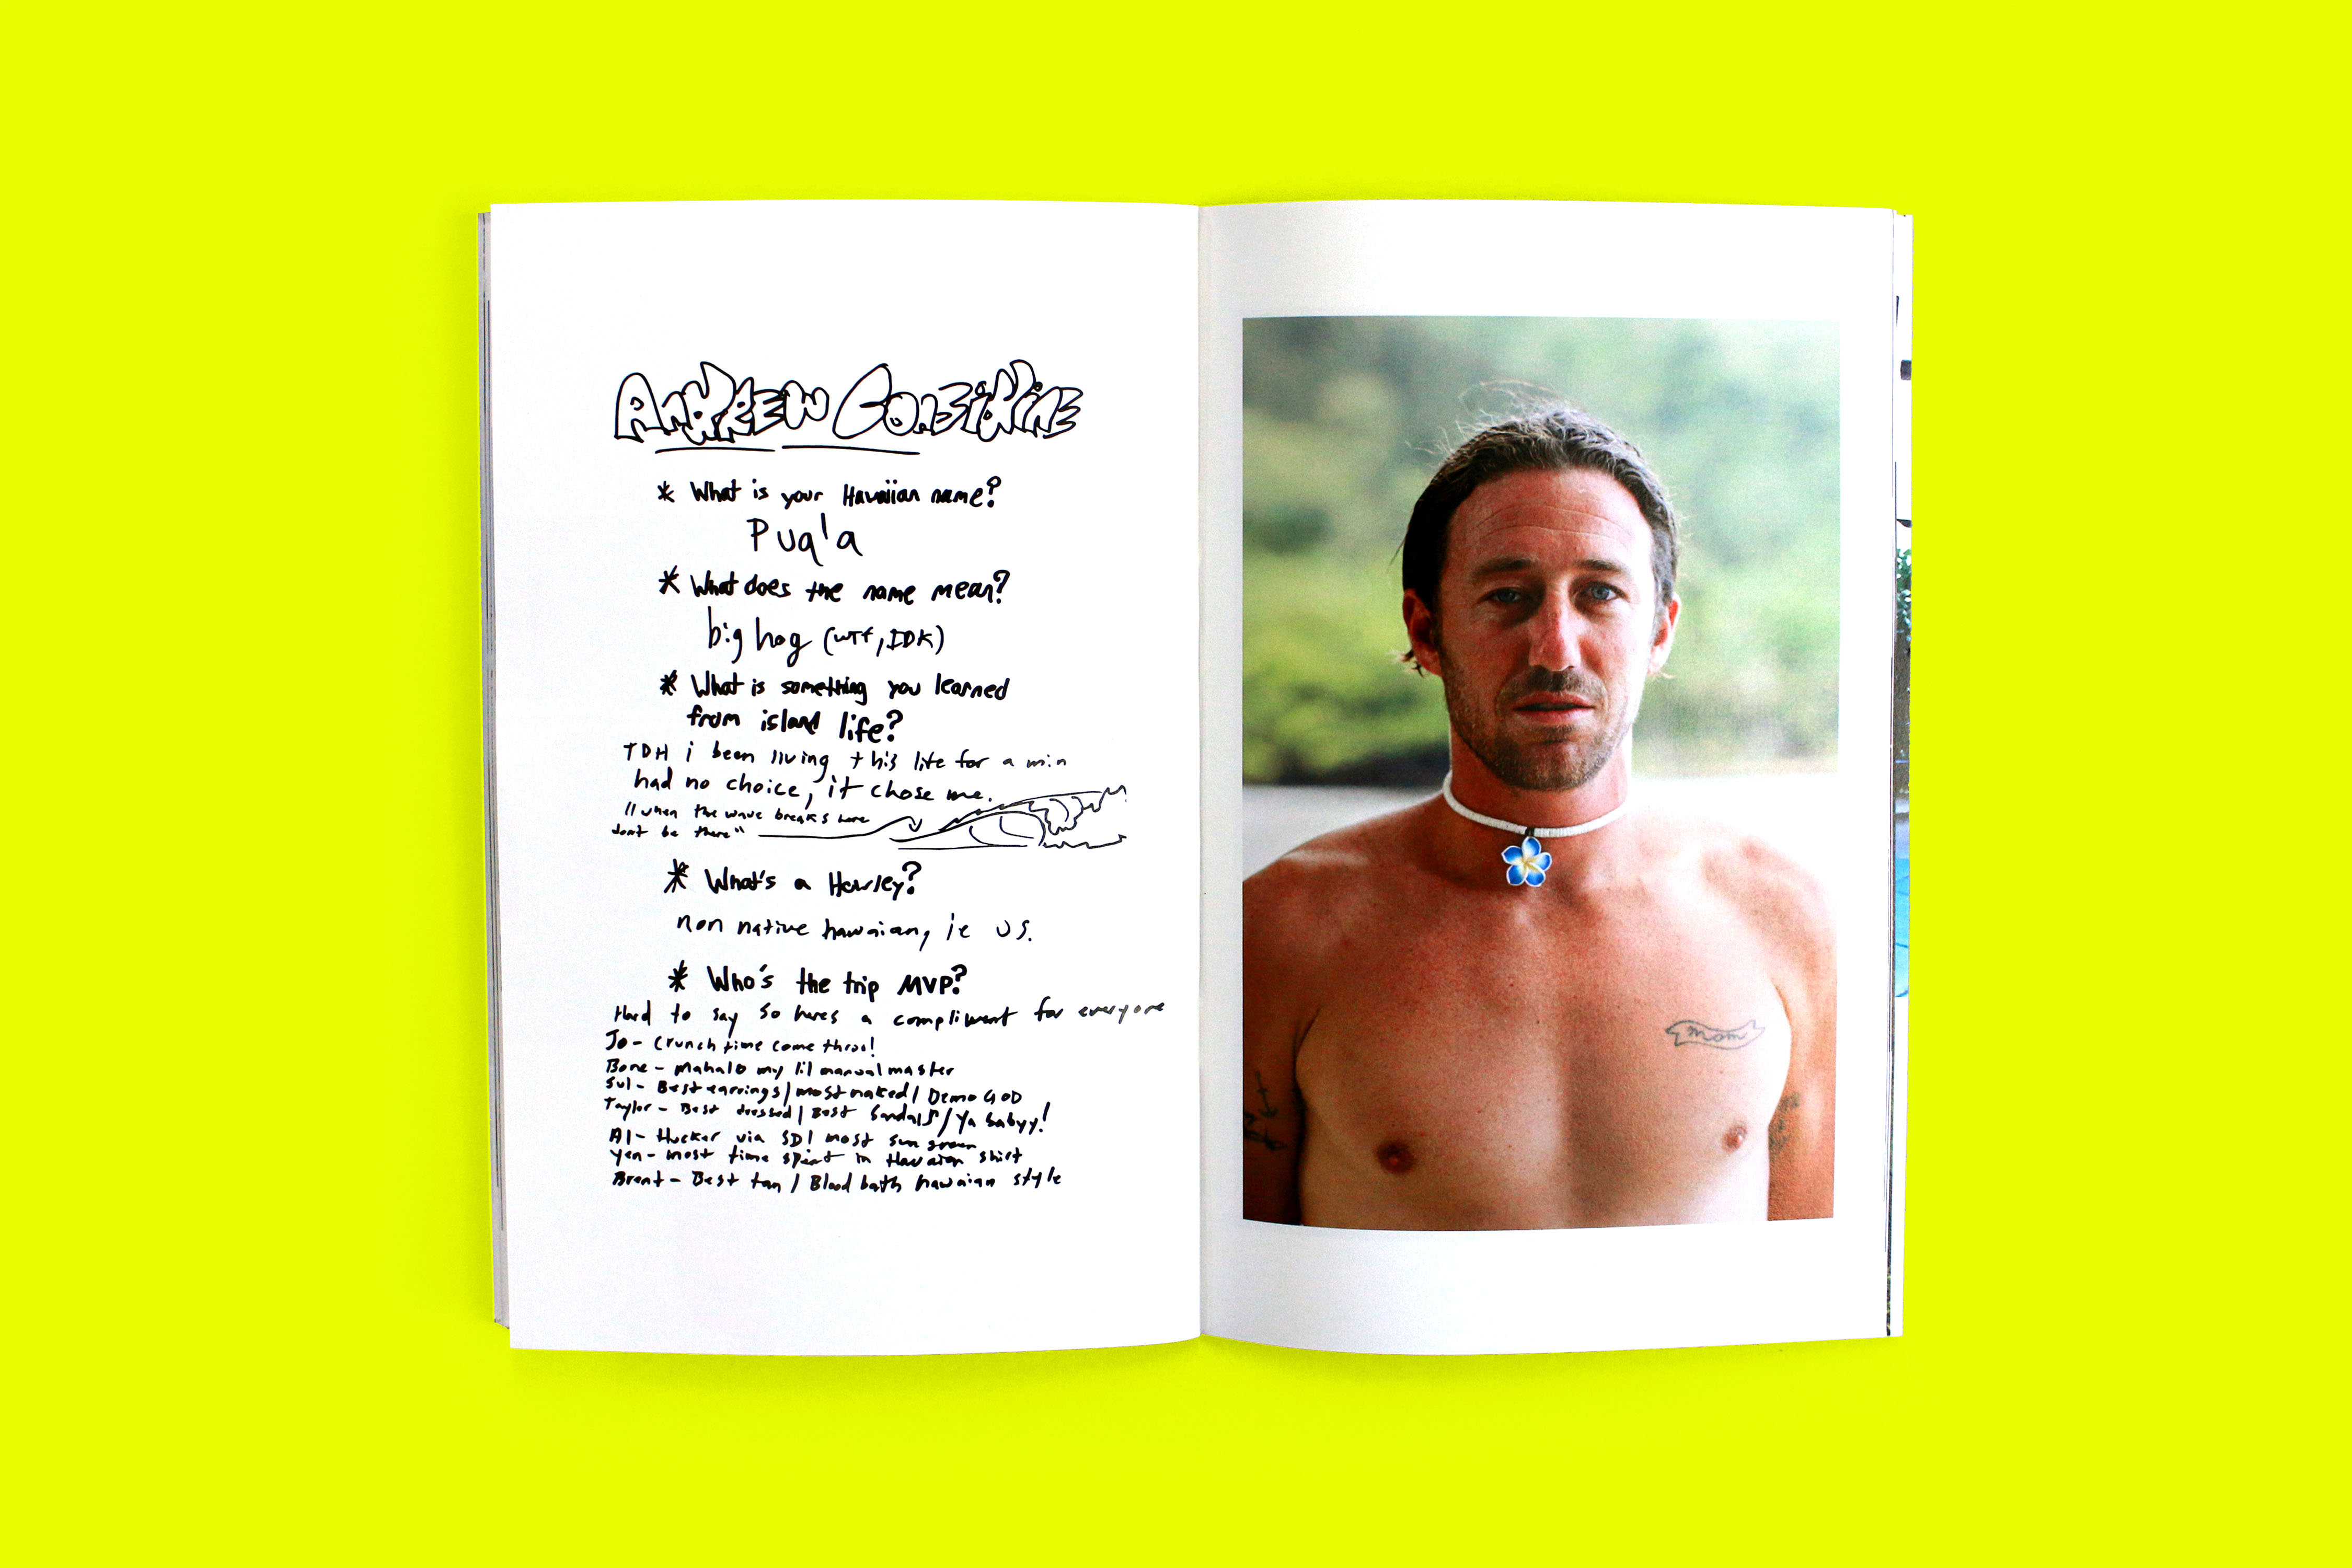 ANDREW CONSIDINE
* What is your Hawaiian name?
Puq'a
* What does the name mean?
big hog (WTF, IDK)
* What is something you learned
from island life?
TBH i been living this life for a min
had no choice, it chose me.
"when the wave breaks here
dont be there"
* What's a Howley?
non native hawaiian, ie US.
* Who's the trip MVP?
Hard to say so heres a compliment for everyone
Jo - Crunch time come throo!
Bone - Mahalo my lil manual master
Sul - Best earrings / most naked / Demo GOD
Taylor - Best dressed / Best Sandals / Ya babyy!
Al - Hucker via SD / most sun
Yen - most time spent in Hawaiian shirt
Brent - Best tan / Blood bath hawaiian style
mom